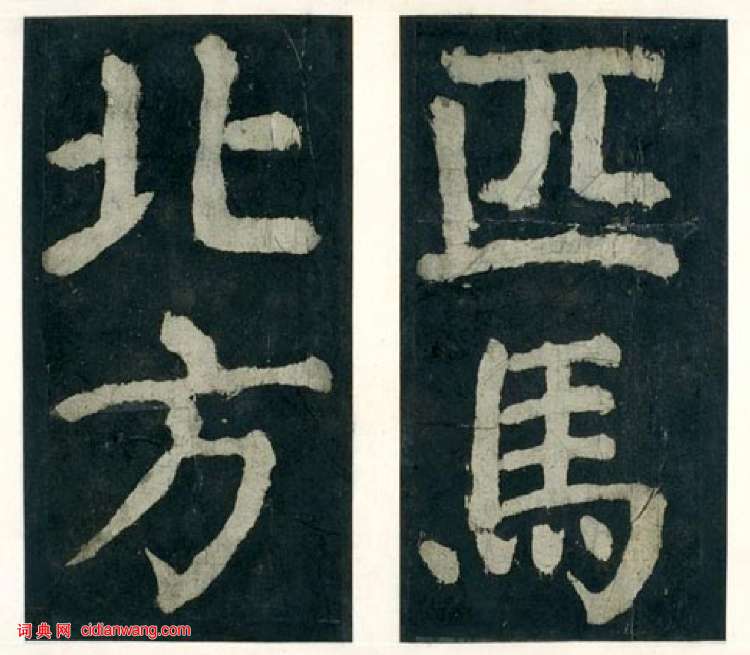 匹馬
北方
词典网 cidianwang.com